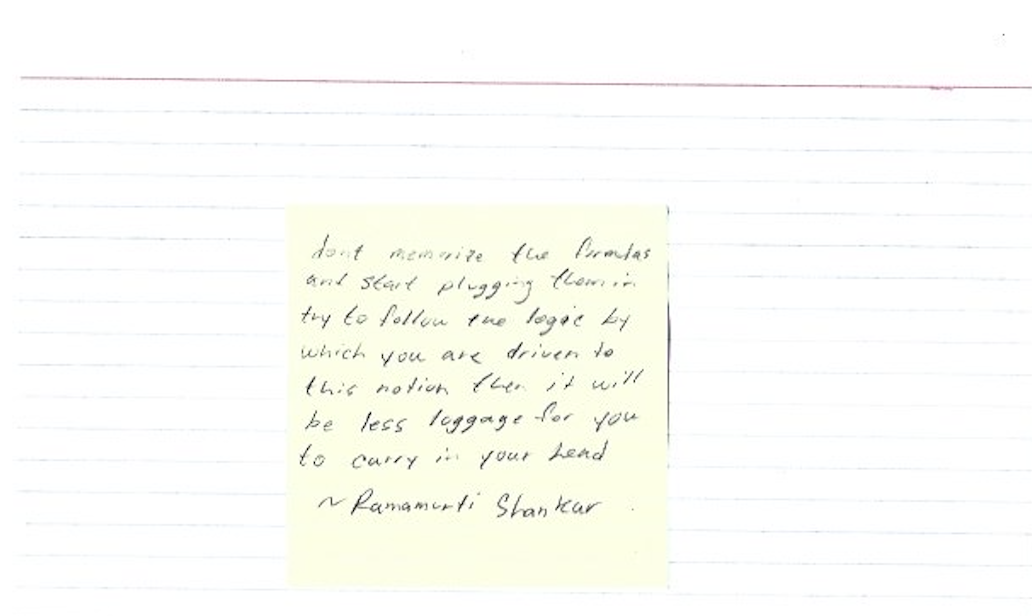 dont memorize the formulas
and start plugging them in
try to follow the logic by
which you are driven to
this notion then it will
be less luggage for you
to carry in your head
~ Ramamurti Shankar